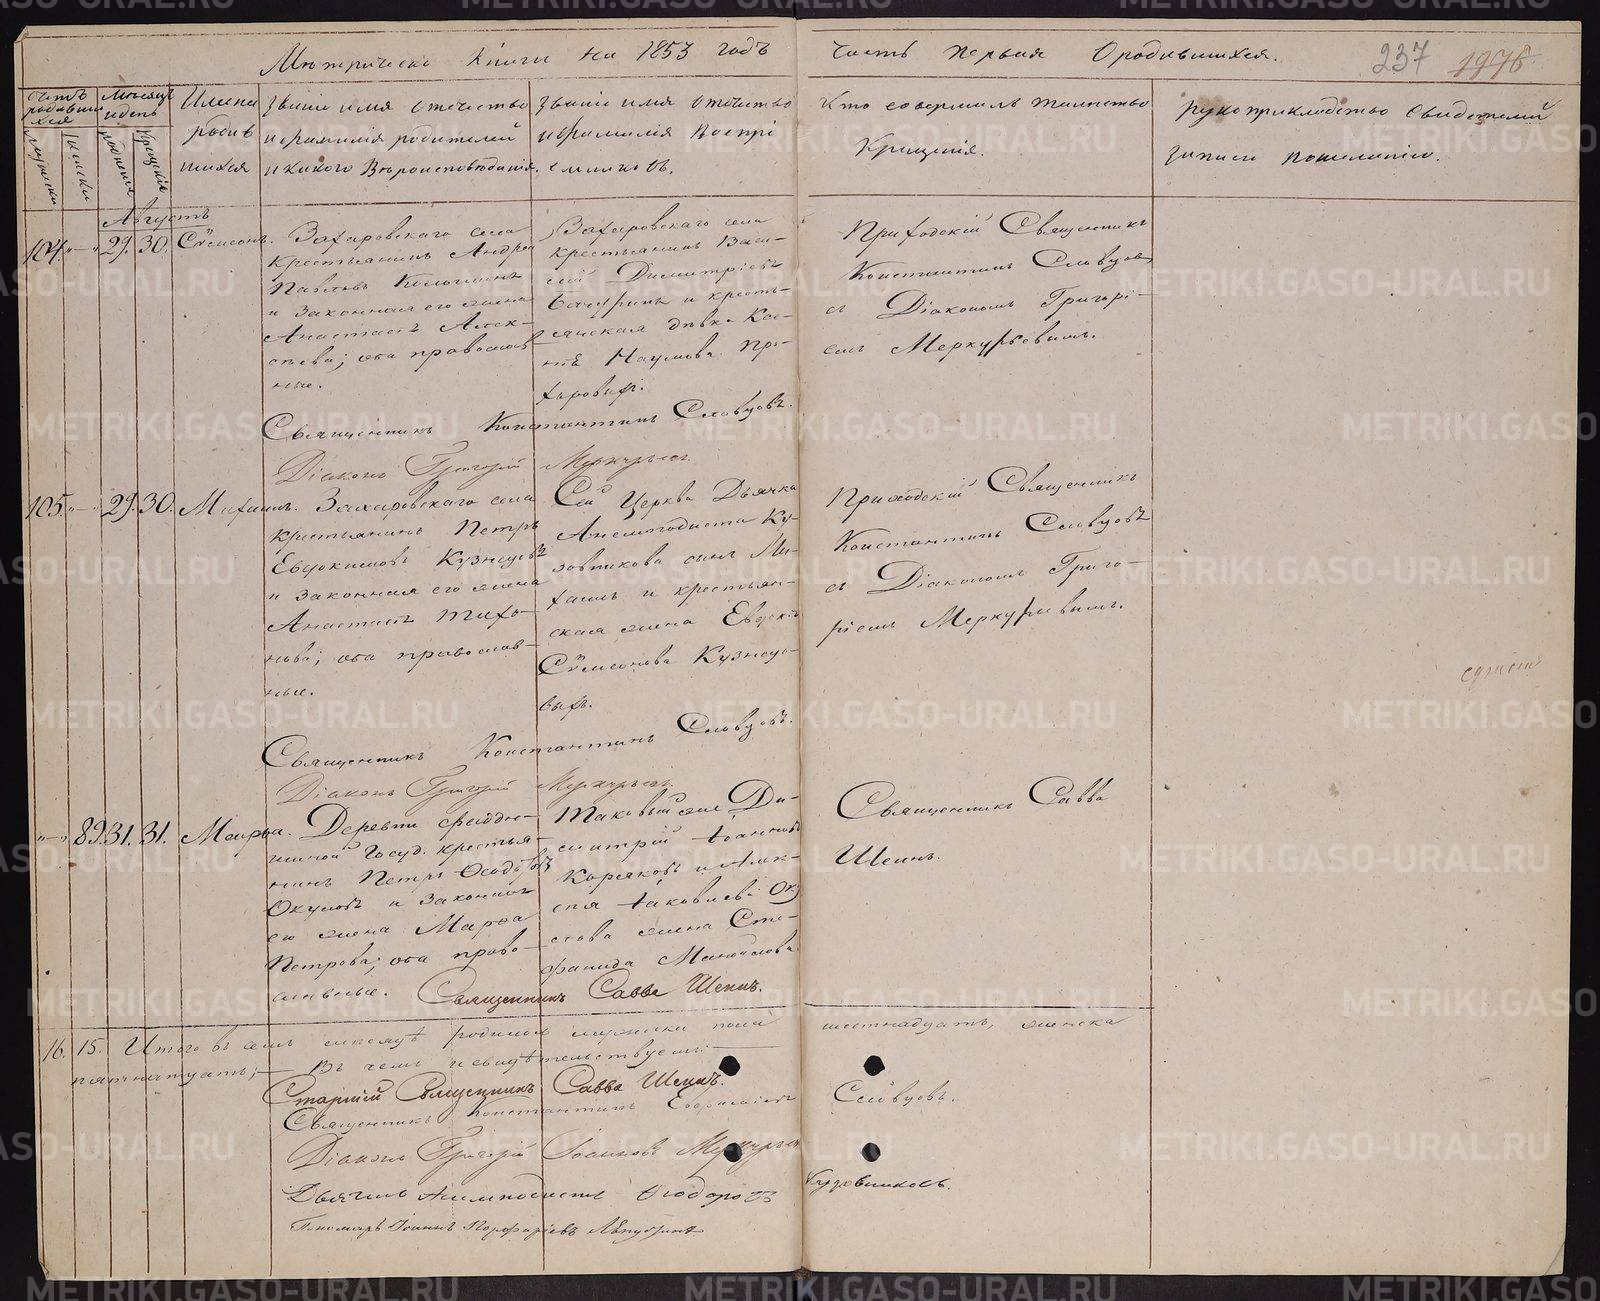 Метрическа Книги на 1853 годъ
Часть Первая О родившихся.
237 1978
Счетъ родившихся
Мужеска
Женска
Мѣсяцъ и день
Рожденія
Крещенія
Имена
родив
шихся
Званіе имя отечество
и фамилія родителей
и какого Вѣроисповѣданія.
Званіе имя отчество
и фамилія Воспрі
емниковъ.
Кто совершилъ таинство
Крещенія.
Рукоприкладство Свидетелей
записи пожеланію.
Августъ
104. 29. 30. Сѵмеонъ.
Захаровскаго села
крестьянинъ Андрей
Павловъ
и Законная его жена
Анастасія Алек-
сѣева; оба православ
ные.
Захаровскаго села
крестьянинъ Васи-
лій Димитріевъ
и кресть-
янская дѣвка Ксе-
нія Наумова Про-
хоровыхъ.
Приходскій Священникъ
Константинъ Словцовъ
съ Діакономъ Григорі-
емъ Меркурьевымъ.
Священникъ Константинъ Словцовъ.
Діаконъ Григорій Меркурьевъ
105. 29. 30. Михаилъ.
Захаровскаго села
крестьянинъ Петръ
Евдокимовъ Кузнецовъ
и Законная его жена
Анастасія Тихо-
нова; оба православ-
ные.
Сей Церкви Дьячка
Анемподиста Ку-
зовникова сынъ Ми-
хаилъ и крестьян-
ская жена Евдокія
Сѵмеонова Кузнецо-
выхъ.
Приходскій Священникъ
Константинъ Словцовъ
съ Діакономъ Григо-
ріемъ Меркурьевымъ.
Священникъ Константинъ Словцовъ.
Діаконъ Григорій Меркурьевъ
89. 31. 31. Марѳа.
Деревни
Госуд. крестья-
нинъ Петръ Ѳеодоровъ
Окуловъ и Законная
его жена Марѳа
Петрова; оба право-
славные.
Таковый же Ди-
митрій Іоанновъ
Корляковъ и Алек-
сѣя Іаковлева Оку
лова жена Сте-
фанида Манойлова
Священникъ Савва
Шеинъ.
Священникъ Савва Шеинъ.
16. 15. Итого въ семъ месяцѣ родилось мужеска пола шестнадцать, женска
пятнатцать; Въ чемъ и свидѣтельствуемъ:
Старшій Священникъ Савва Шеинъ.
Священникъ Константинъ Словцовъ.
Діаконъ Григорій Іоанновъ Меркурьевъ
Дьячекъ Анемподистъ Ѳеодоровъ Кузовниковъ.
Пономарь Іоаннъ Порфирьевъ
METRIKI.GASO-URAL.RU